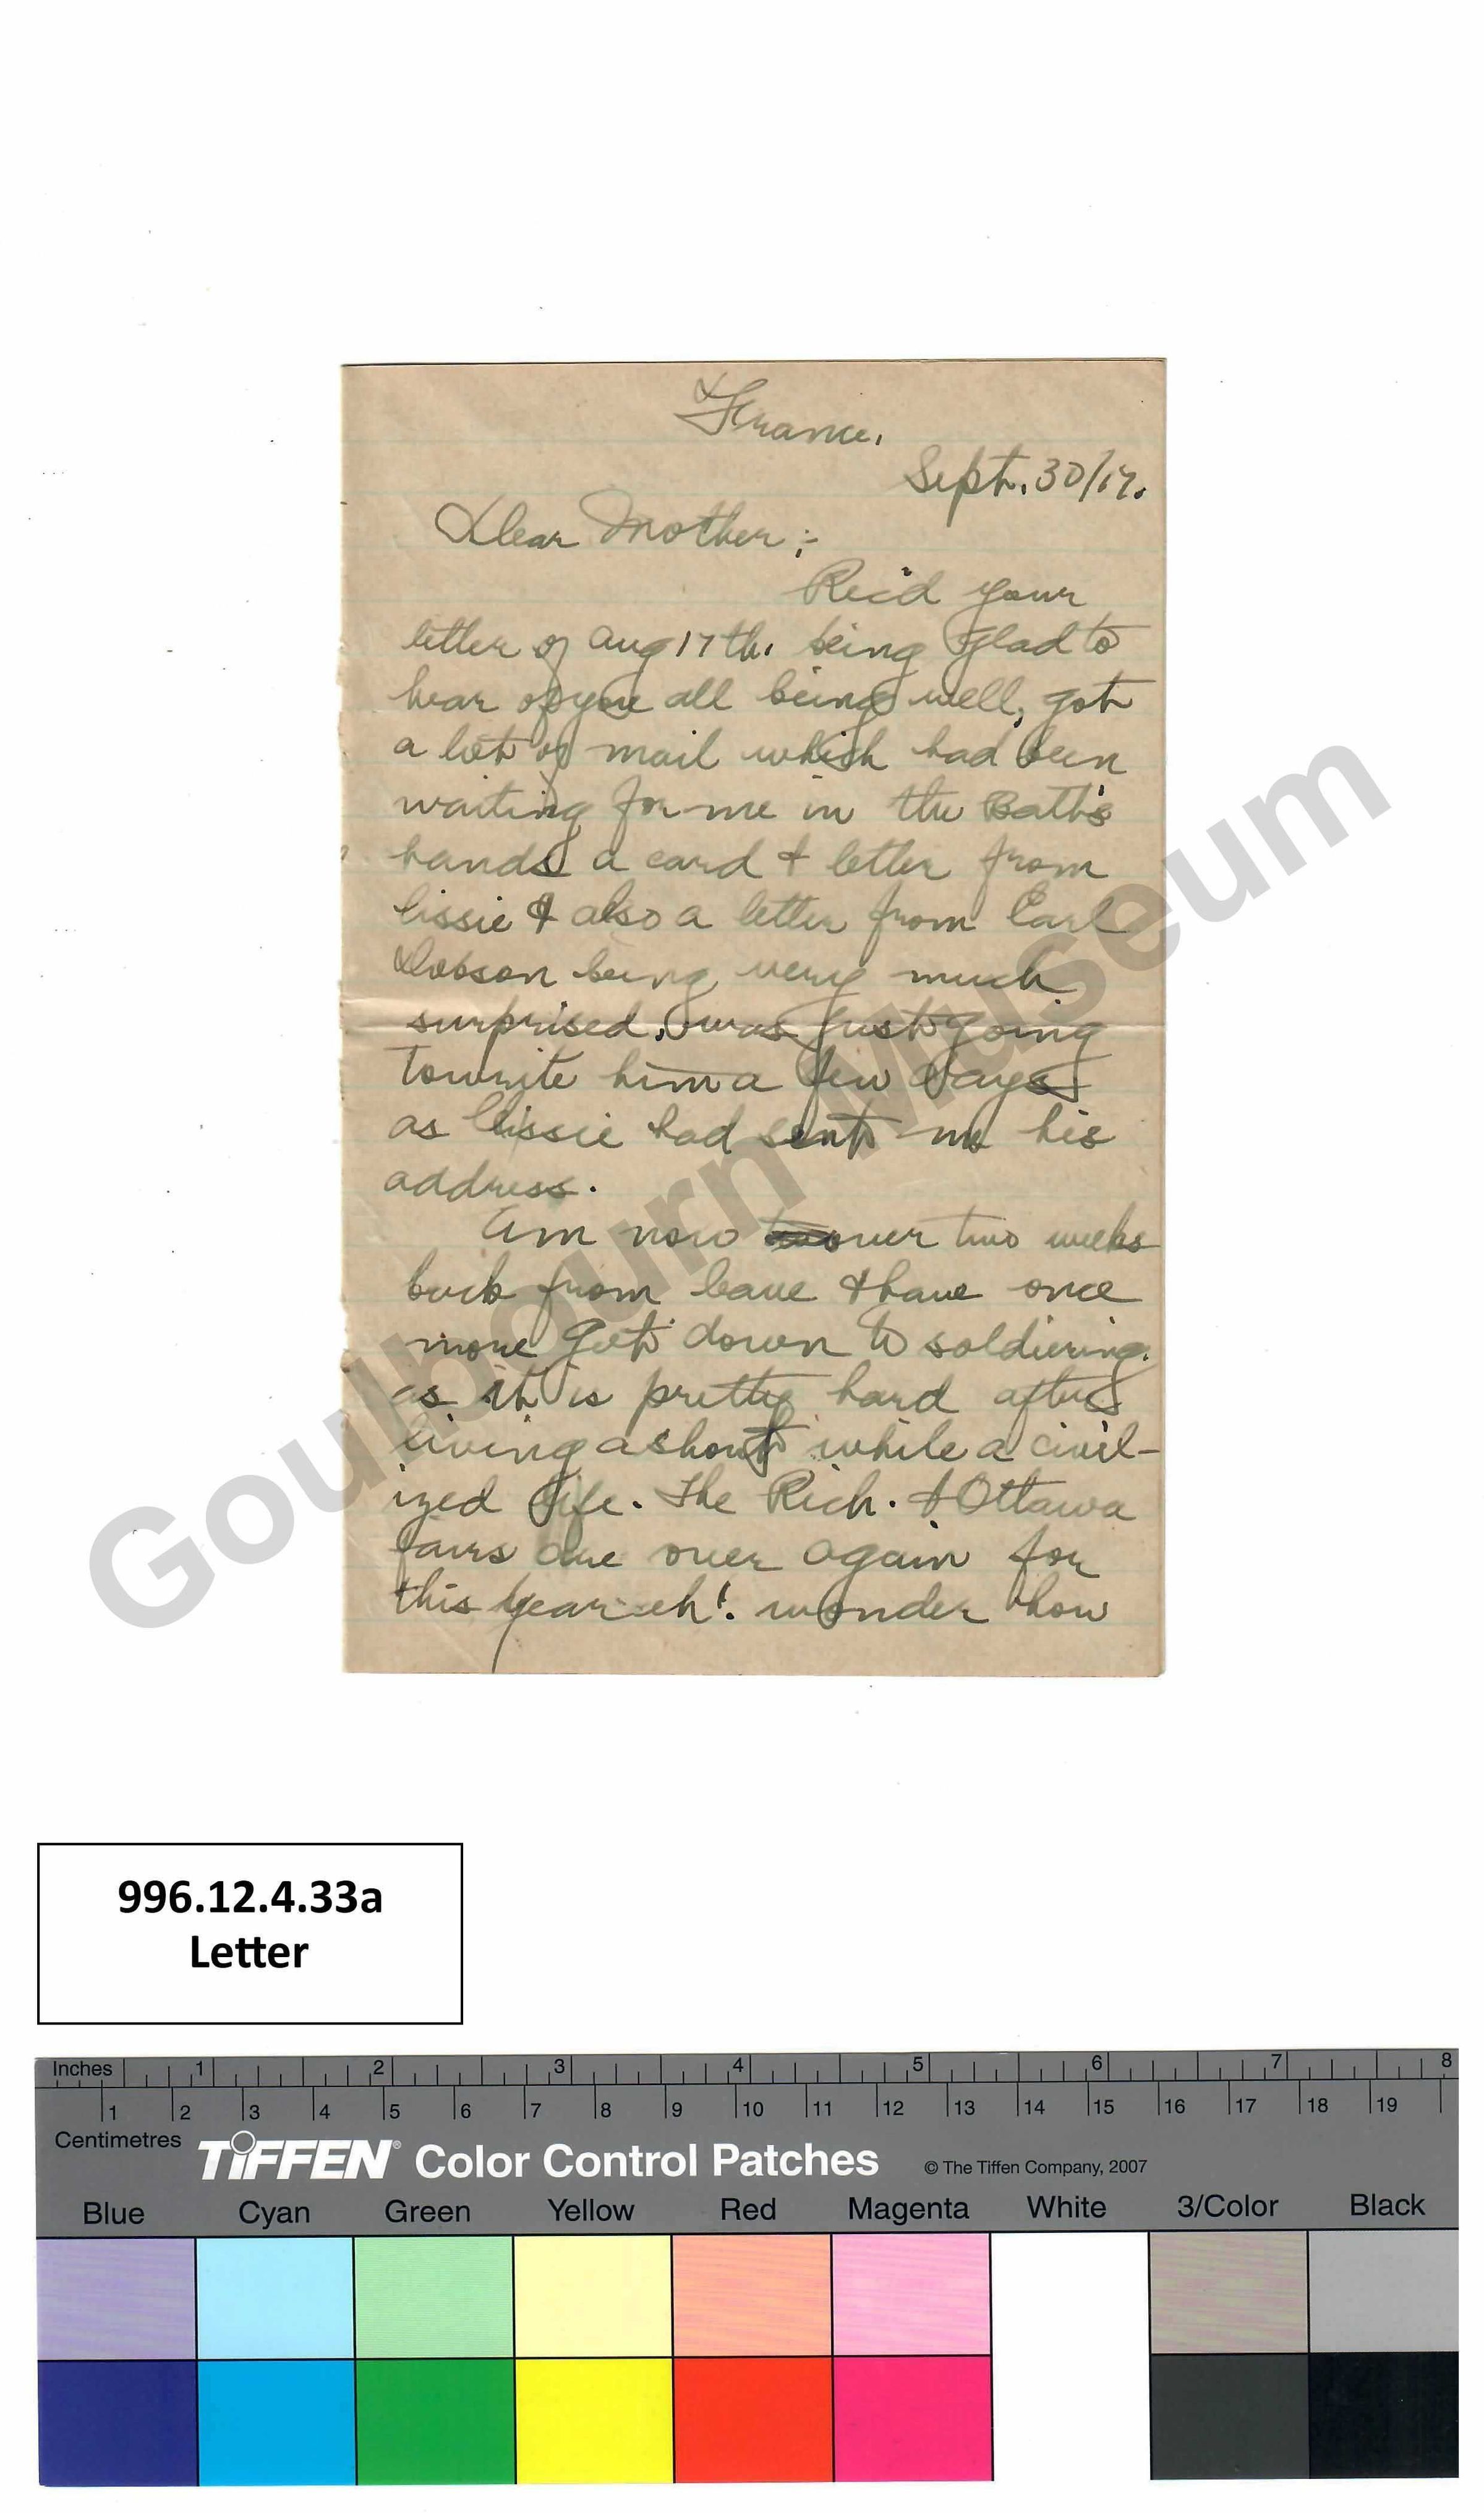 France,
Sept. 30/17.
Dear Mother;-
Rec'd your
letter of Aug 17th. being glad to
hear of you all being well, got
a lot of mail which had been
waiting for me in the Batt's
hands a card & letter from
Lissie & also a letter from Earl
Dobson being very much
surprised, was just going
to write him a few days
as Lissie had sent me his
address.
Am now over two weeks
back from leave & have once
more got down to soldiering.
as it is pretty hard after
living a short while a civil-
ized life. The Rich. & Ottawa
fairs are over again for
this year eh! wonder how
Goulbourn Museum
996.12.4.33a
Letter
Inches 1 2 3 4 5 6 7 8
1 2 3 4 5 6 7 8 9 10 11 12 13 14 15 16 17 18 19
Centimetres
TIFFEN® Color Control Patches © The Tiffen Company, 2007
Blue Cyan Green Yellow Red Magenta White 3/Color Black